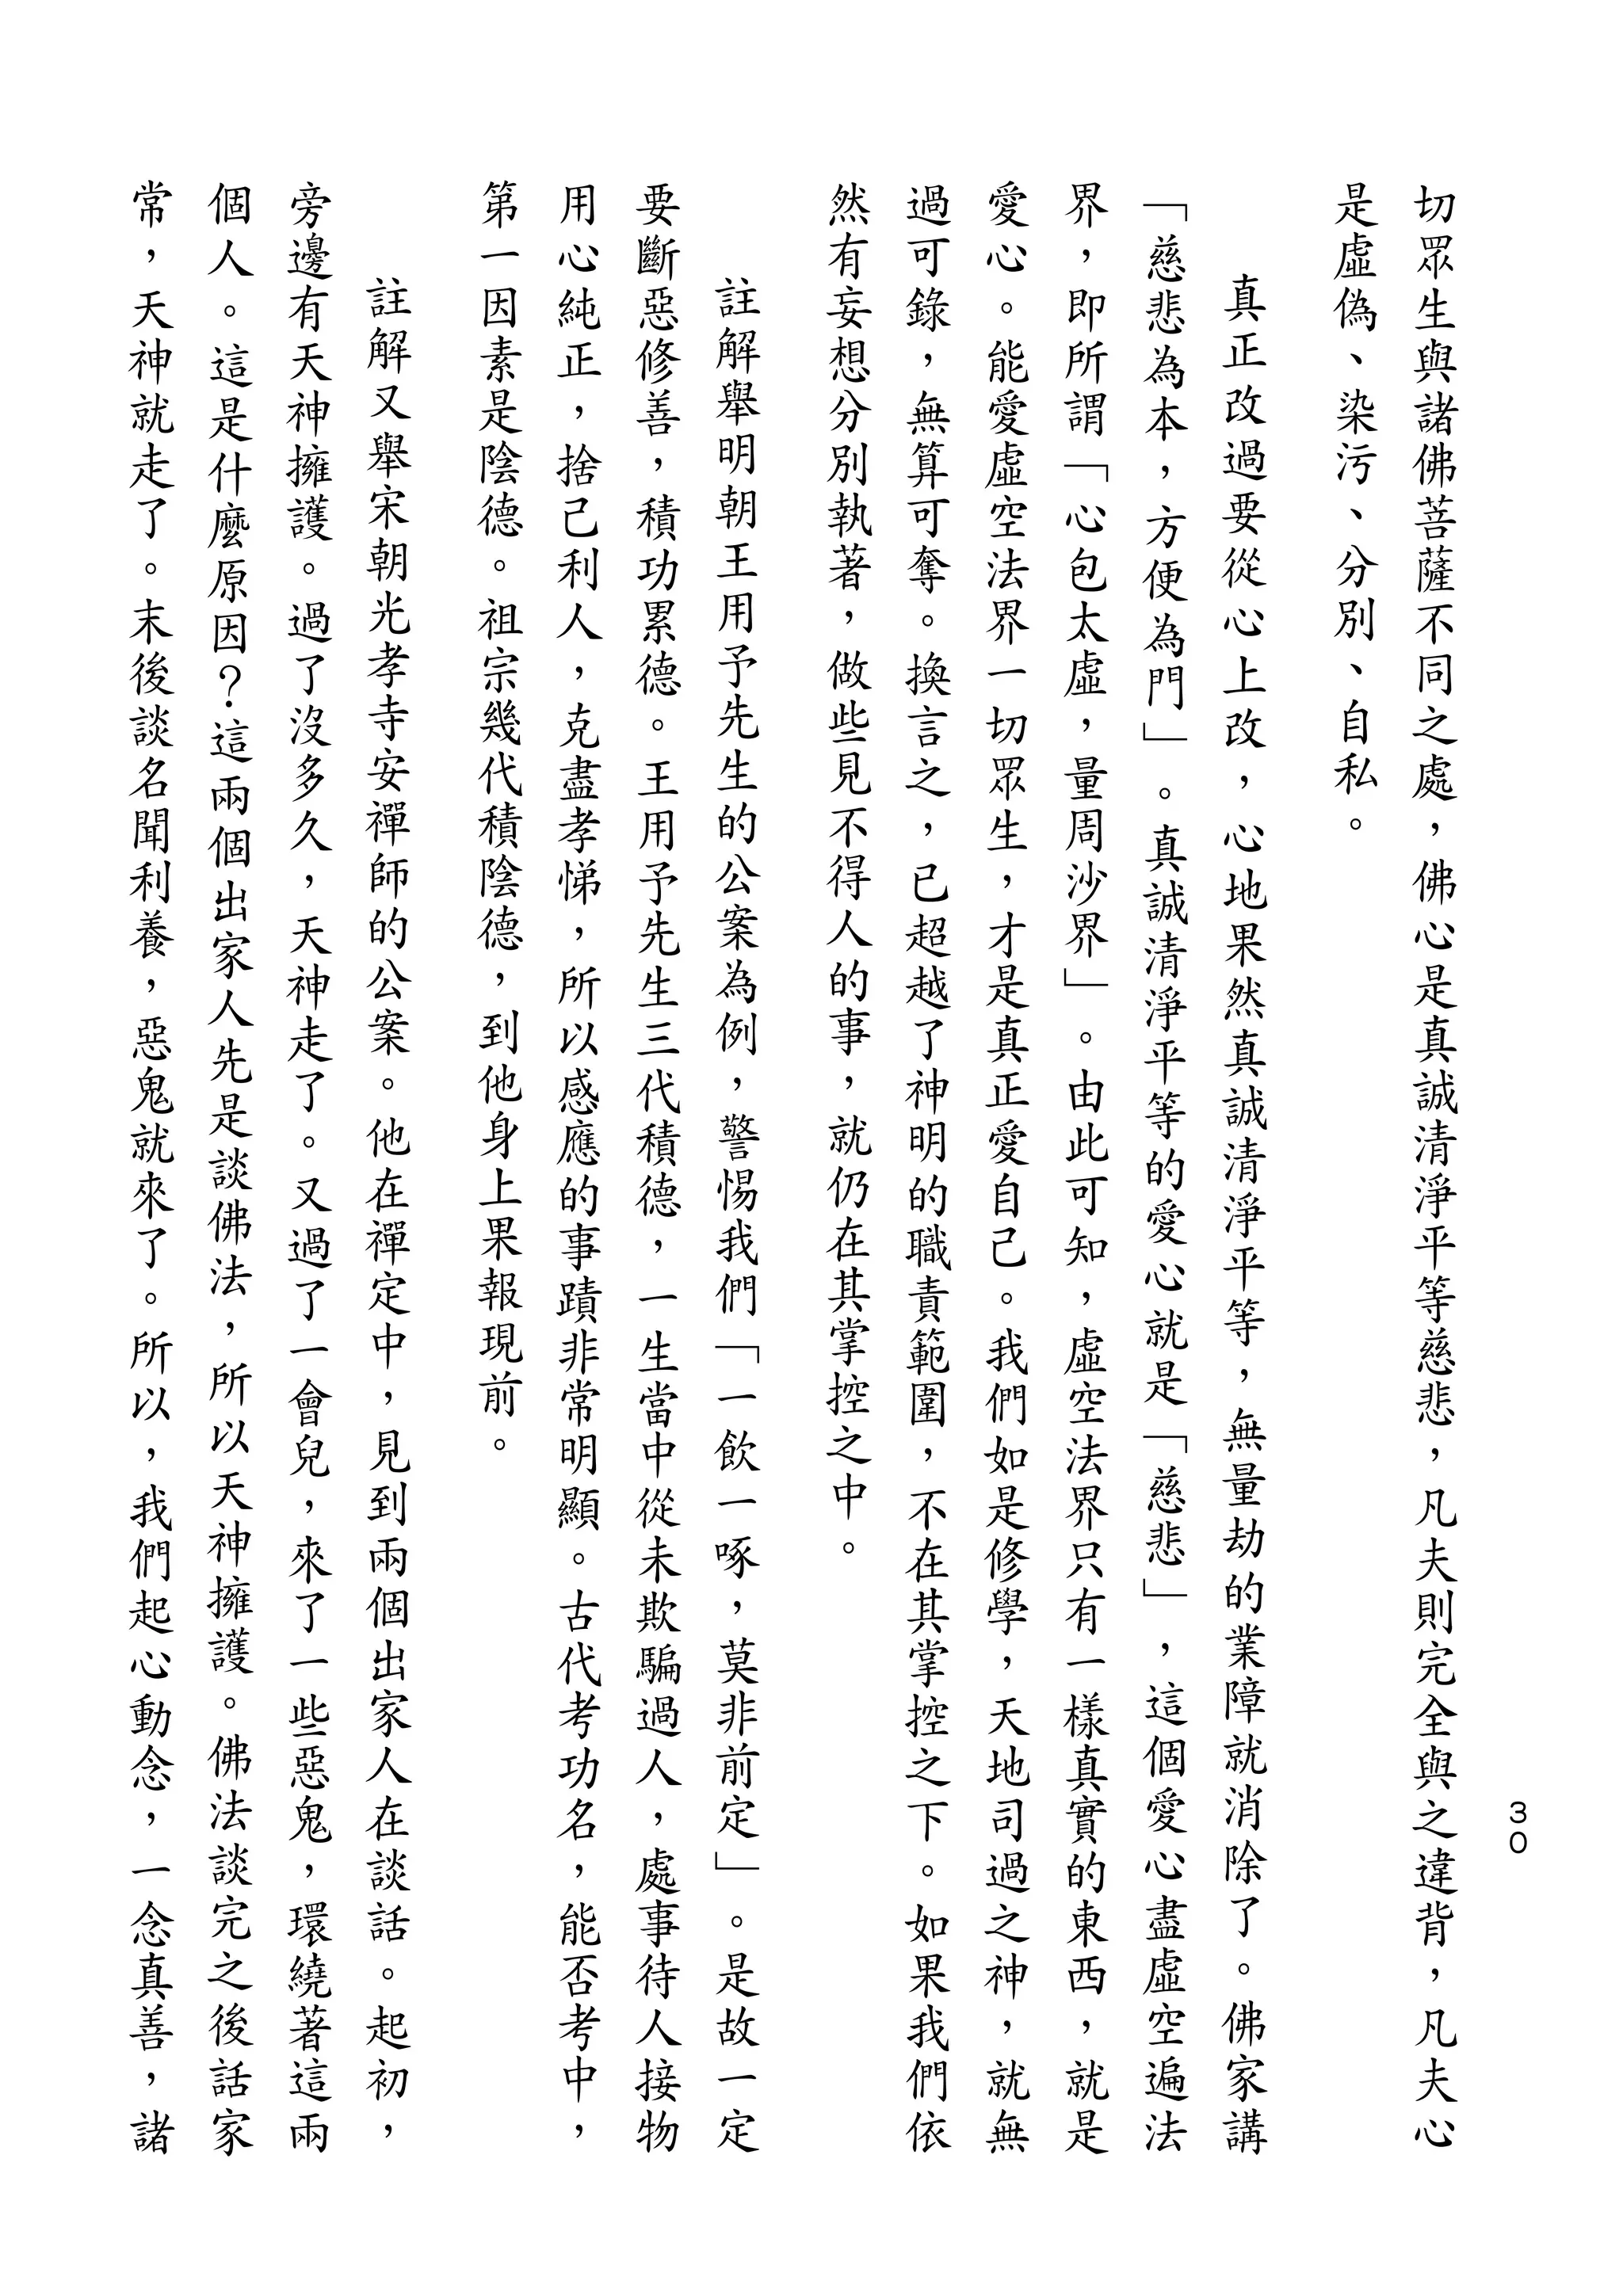 30
切眾生與諸佛菩薩不同之處，佛心是真誠清淨平等慈悲，凡夫則完全與之違背，凡夫心
是虛偽、染污、分別、自私。
真正改過要從心上改，心地果然真誠清淨平等，無量劫的業障就消除了。佛家講
「慈悲為本，方便為門」。真誠清淨平等的愛心就是「慈悲」，這個愛心盡虛空遍法
界，即所謂「心包太虛，量周沙界」。由此可知，虛空法界只有一樣真實的東西，就是
愛心。能愛虛空法界一切眾生，才是真正愛自己。我們如是修學，天地司過之神，就無
過可錄，無算可奪。換言之，已超越了神明的職責範圍，不在其掌控之下。如果我們依
然有妄想分別執著，做些見不得人的事，就仍在其掌控之中。
註解舉明朝王用予先生的公案為例，警惕我們「一飲一啄，莫非前定」。是故一定
要斷惡修善，積功累德。王用予先生三代積德，一生當中從未欺騙過人，處事待人接物
用心純正，捨己利人，克盡孝悌，所以感應的事蹟非常明顯。古代考功名，能否考中，
第一因素是陰德。祖宗幾代積陰德，到他身上果報現前。
註解又舉宋朝光孝寺安禪師的公案。他在禪定中，見到兩個出家人在談話。起初，
旁邊有天神擁護。過了沒多久，天神走了。又過了一會兒，來了一些惡鬼，環繞著這兩
個人。這是什麼原因？這兩個出家人先是談佛法，所以天神擁護。佛法談完之後話家
常，天神就走了。末後談名聞利養，惡鬼就來了。所以，我們起心動念，一念真善，諸